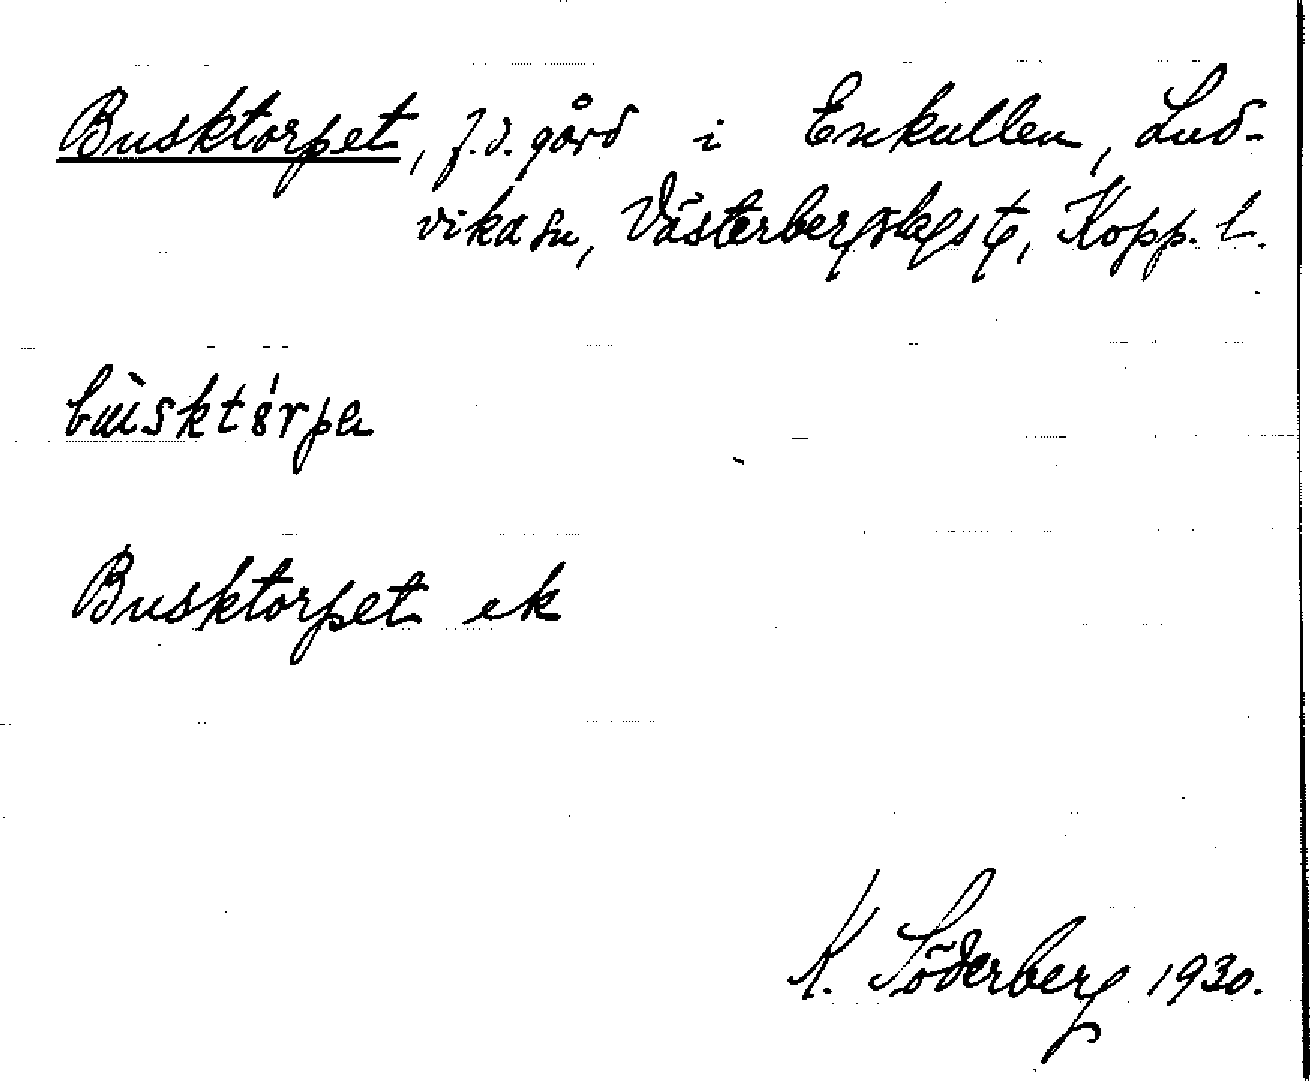 Busktorpet, f.d. gård i Enkullen, Lud-
vika sn, Västerbergslags tg, Kopp. l.
Busktorpet ek
K. Söderberg 1930.